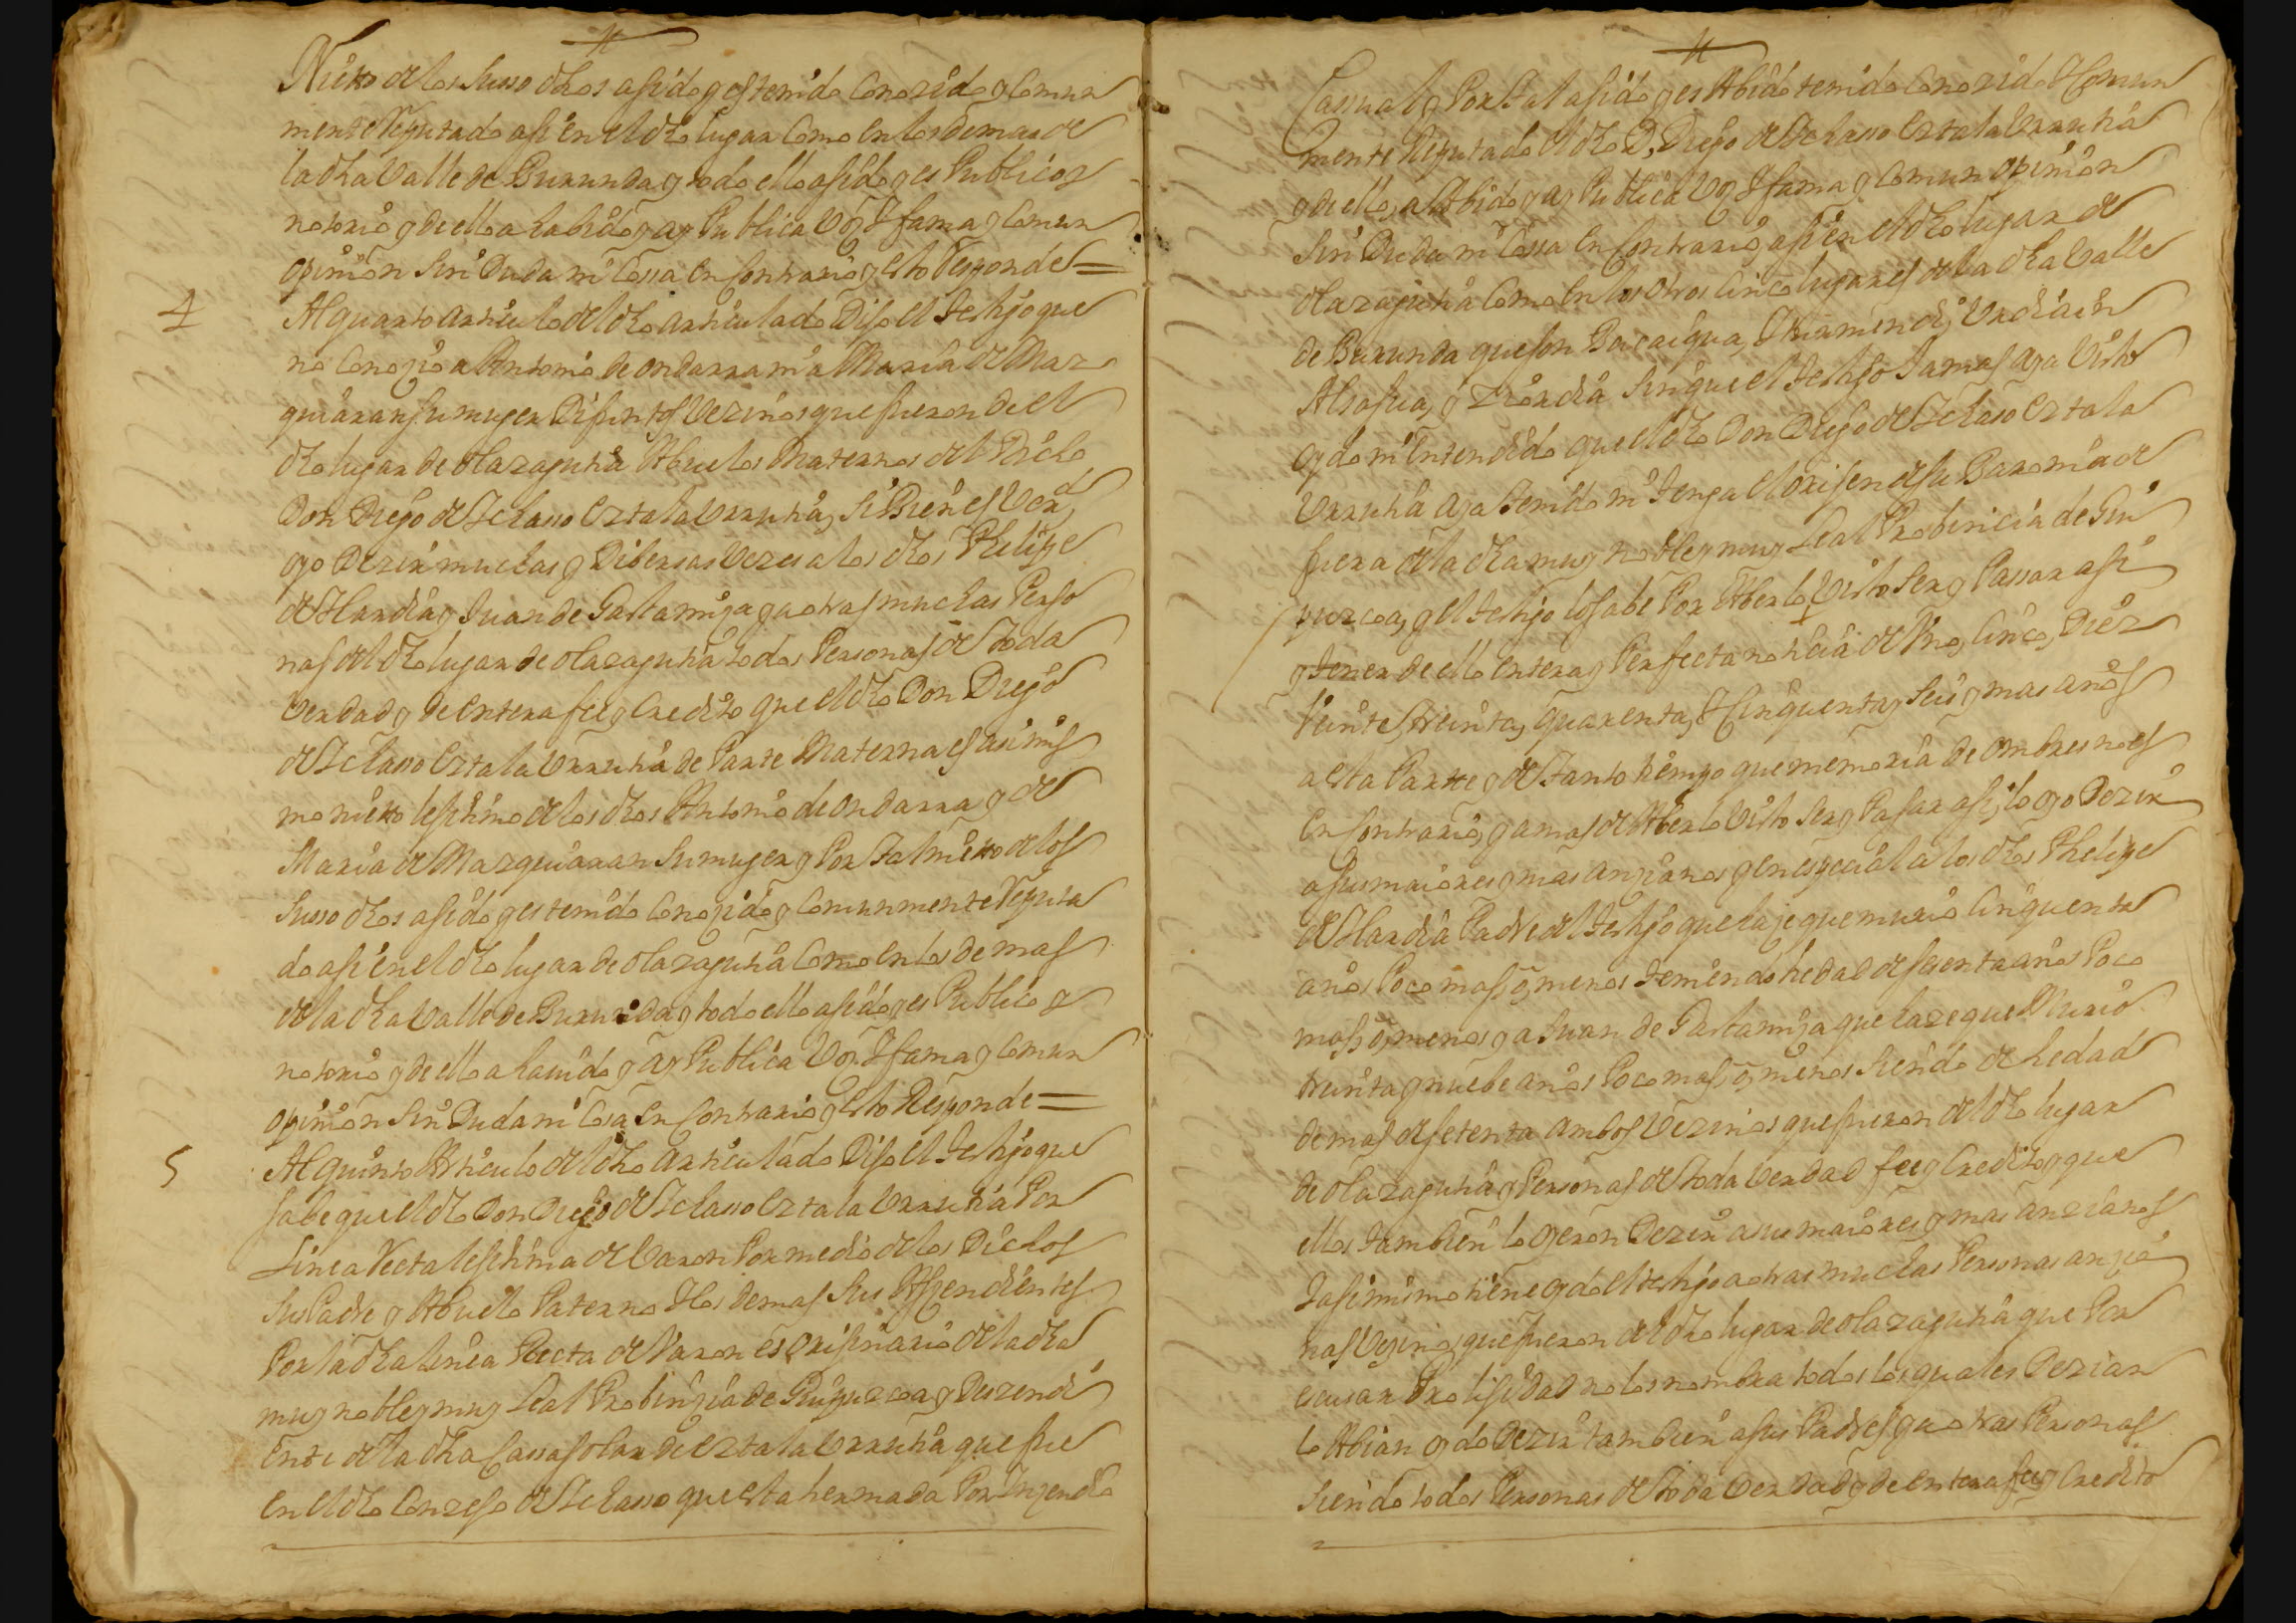 Nieto de los Susso dhos a sido y es tenido Conozido y Comun
mente Reputado asi en el dho lugar Como en los demas de
la dha Valle de Burunda y todo ello a sido y es Publico y
notorio y de ello a habido y ay Publica Voz y fama y Comun
opinion sin Duda ni Cossa en Contrario y esto Responde =
4 Al quarto articulo del dho articulado Dijo el testigo que
no Conozio a Antonio de ondarra ni a Maria de Maz
quiaran su muger Difuntos Vezinos que fueron de el
dho lugar de olazagutia Abuelos Maternos del Dicho
Don Diego de Ychasso Eztala Urrutia, Si Bien es Verd
oyo Dezir muchas y Dibersas Vezes a los dhos Phelipe
de Ylardia y Juan de Gastamiza y a otras muchas Perso
nas del dho lugar de olazagutia todos Personas de toda
Verdad y de entera fee y Credito que el dho Don Diego
de Ychasso Eztala Urrutia de Parte Materna es asimis
mo nieto lejitimo de los dhos Antonio de ondarra y de
Maria de Mazquiaran su muger y Por tal nieto de los
Susso dhos a sido y es tenido Conozido y Comunmente Reputa
do asi en el dho lugar de olazagutia Como en los demas
de la dha Valle de Burunda y todo ello a sido y es Publico y
notorio y de ello a hauido y ay Publica Voz y fama y Comun
opinion sin Duda ni Cosa en Contrario y esto Responde =
5 Al quinto Articulo del dho articulado Dijo el testigo que
sabe que el dho Don Diego de Ychasso Eztala Urrutia Por
Linea Recta lejitima de Varon Por medio de los Dichos
Sus Padre y Abuelo Paterno y los demas Sus Aszendientes
Por la dha linea Recta de Varon es orijinario de la dha
muy noble y muy Leal Probinzia de Guipuzcoa y Deszendi
ente de la dha Cassa solar de Eztala Urrutia que fue
en el dho Conzejo de Ychasso que esta hermada Por Inzendio
Cassual y Por tal a sido y es Abido tenido Conozido y Comun
mente Reputado el dho D. Diego de Ychasso Eztala Urrutia
y de ello a Abido y ay Publica Voz y fama y Comun opinion
Sin Duda ni Cossa en Contrario asi en el dho lugar de
olazagutia Como en los otros Cinco lugares de la dha Valle
de Burunda que son Bacaigua, Yturmendi, Urdiain
Alsasua, y Ziordia Sin que el testigo Jamas aya Visto
oydo ni Entendido que el dho Don Diego de Ychasso Eztala
Urrutia aya tenido ni tenga el orijen de su Baronia de
fuera de la dha muy noble y muy Leal Probincia de Gui
puzcoa, y el testigo lo sabe Por Aberlo Visto Ser y Passar asi
y tener de ello entera y Perfecta noticia de Vno, Cinco, Diez
Veinte, treinta, quarenta, y Cinquenta y Seis y mas años
a esta Parte y de tanto tiempo que memoria de ombres no es
en Contrario, y a mas de Aberlo Visto Ser y Pasar asi, lo oyo Dezir
a sus maiores y mas anzianos y en espezial a los dhos Phelipe
de Ylardia Padre del testigo que haze que murio Cinquenta
años Poco mas o menos teniendo hedad de sesenta años Poco
mas o menos y a Juan de Gastamiza que haze que Murio
treinta y nuebe años Poco mas, o, menos siendo de hedad
de mas de setenta ambos Vezinos que fueron del dho lugar
de olazagutia y Personas de toda Verdad fee y Credito y que
ellos tambien lo oyeron Dezir a sus maiores y mas anzianos
Y asimismo tiene oydo el testigo a otras muchas Personas anzia
nas Vezinos que fueron del dho lugar de olazagutia que Por
escusar Prolijidad no los nombra todos los quales Dezian
lo Abian oydo Dezir tambien a sus Padres y a otras Personas
siendo todos Personas de toda Verdad y de entera fee y Credito